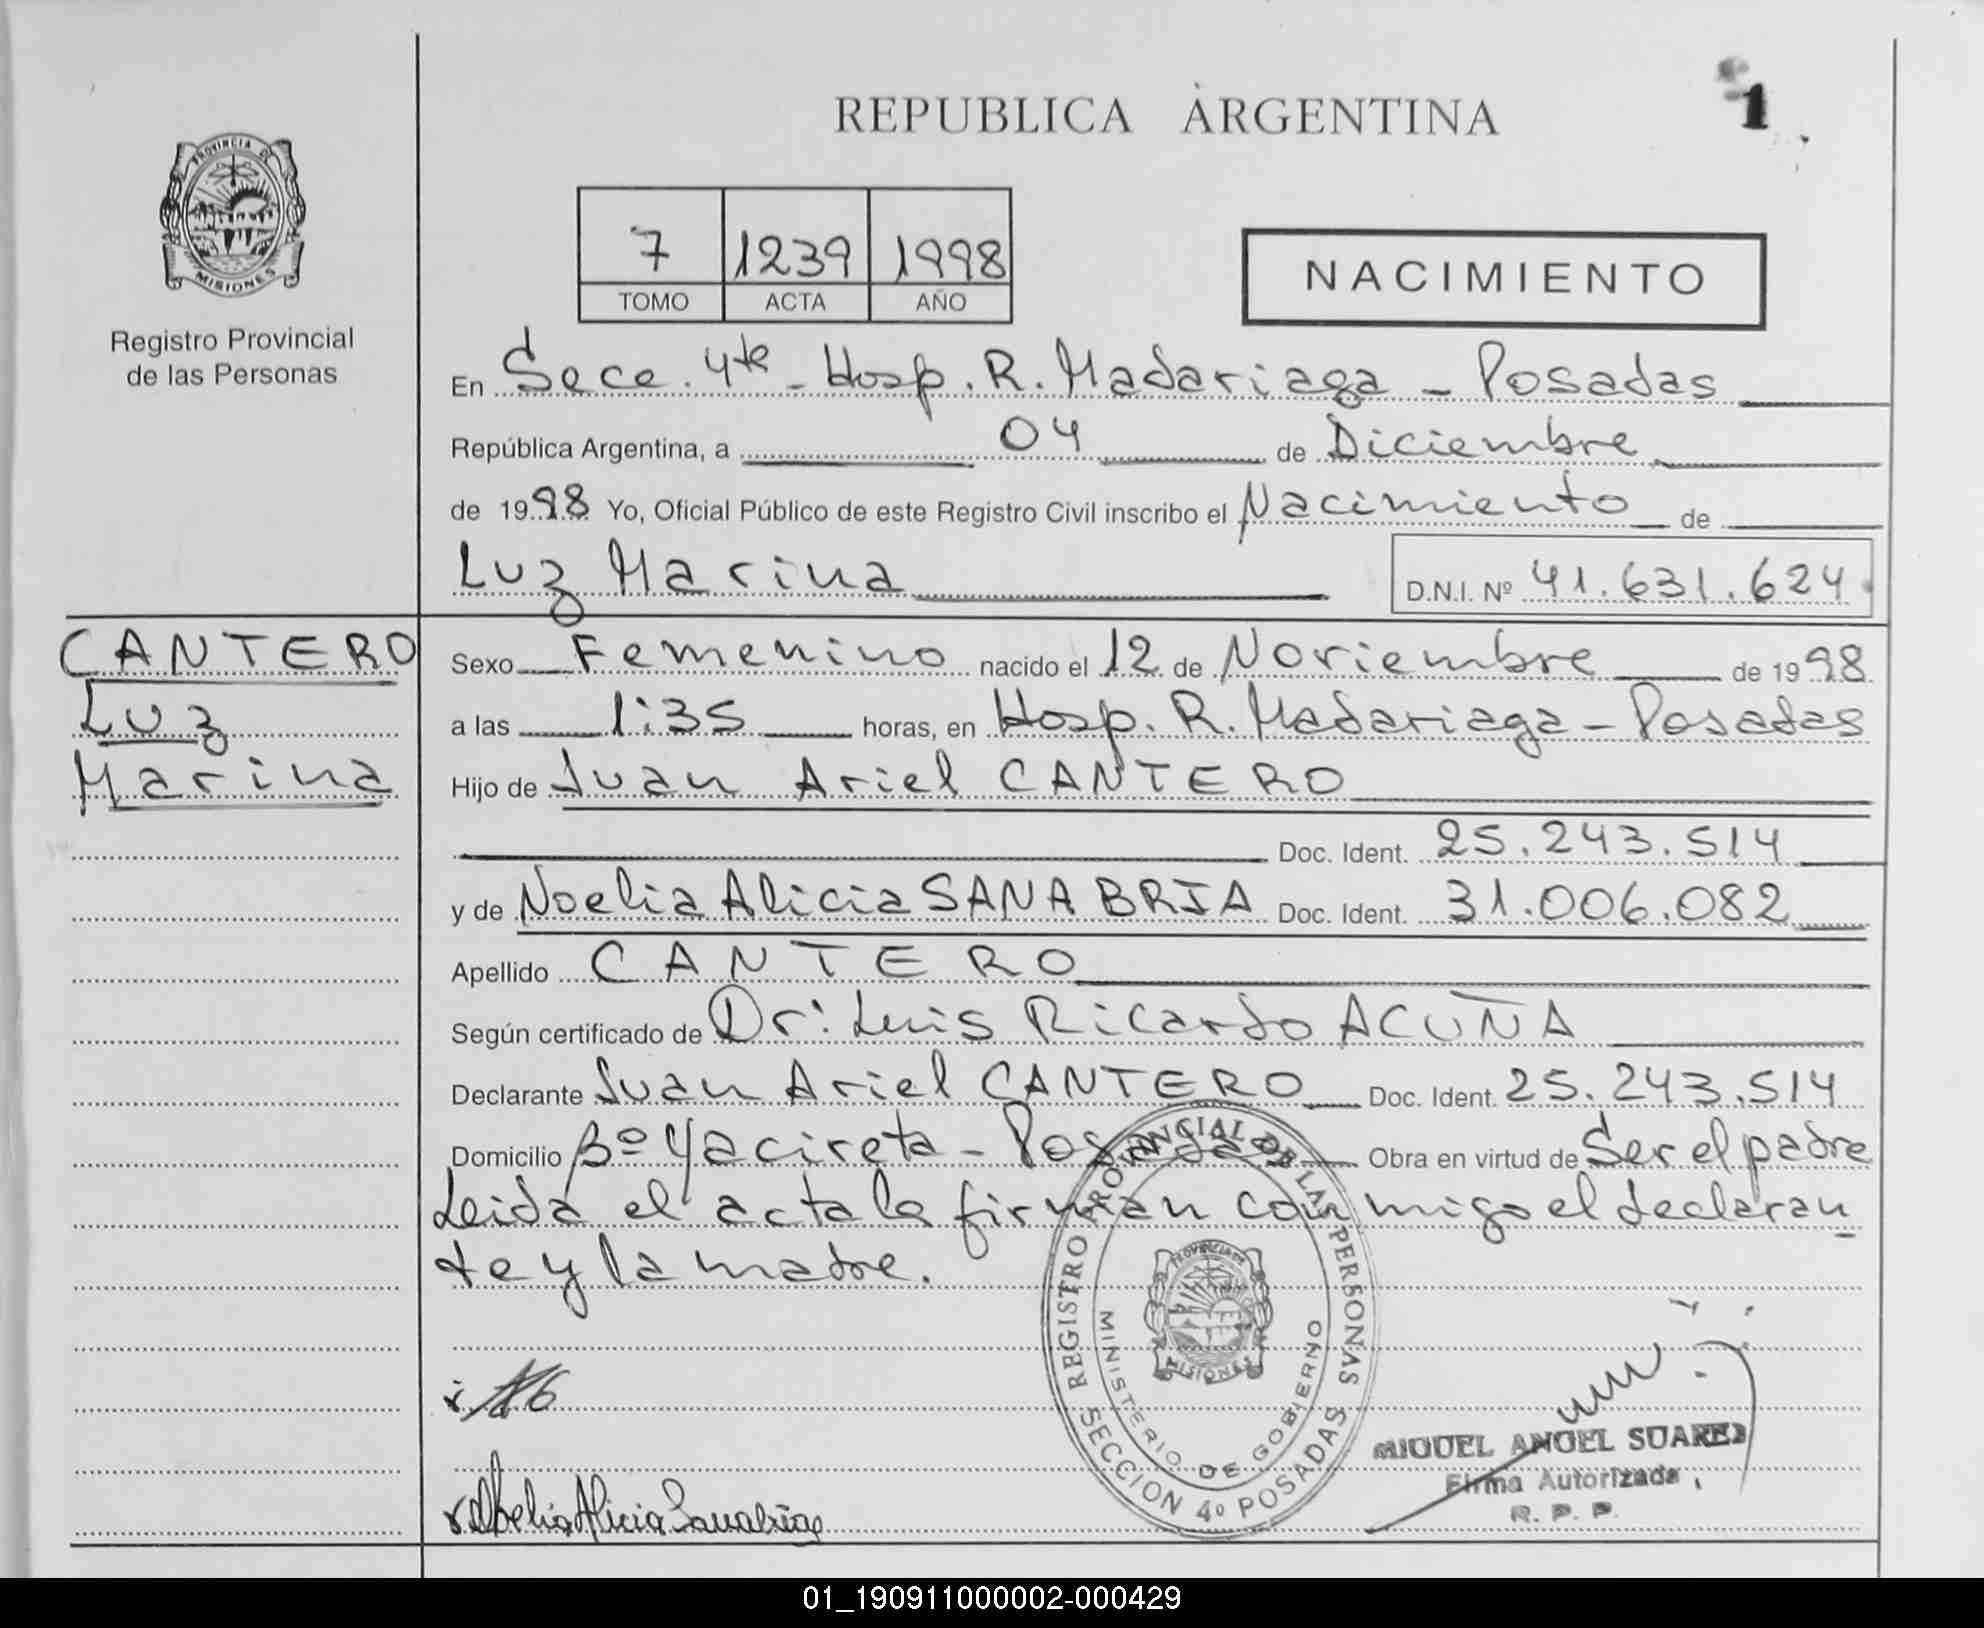 REPUBLICA ARGENTINA
1
PROVINCIA DE
MISIONES
Registro Provincial
de las Personas
7 1239 1998
TOMO ACTA AÑO
NACIMIENTO
En Secc. 4ta - Hosp. R. Madariaga - Posadas
República Argentina, a 04 de Diciembre
de 1998 Yo, Oficial Público de este Registro Civil inscribo el Nacimiento de
Luz Marina D.N.I. Nº 41.631.624
CANTERO
Luz
Marina
Sexo Femenino nacido el 12 de Noviembre de 1998
a las 1:35 horas, en Hosp. R. Madariaga - Posadas
Hijo de Juan Ariel CANTERO
Doc. Ident. 25.243.514
y de Noelia Alicia SANABRIA Doc. Ident. 31.006.082
Apellido CANTERO
Según certificado de Dr: Luis Ricardo ACUÑA
Declarante Juan Ariel CANTERO Doc. Ident. 25.243.514
Domicilio Bº Yacireta - Posadas Obra en virtud de Ser el padre
Leida el acta la firman conmigo el declaran
te y la madre.
REGISTRO PROVINCIAL DE LAS PERSONAS
PROVINCIA DE
MISIONES
MINISTERIO DE GOBIERNO
SECCION 4º POSADAS
MIGUEL ANGEL SUAREZ
Firma Autorizada
R. P. P.
Noelia Alicia Sanabria
01_190911000002-000429